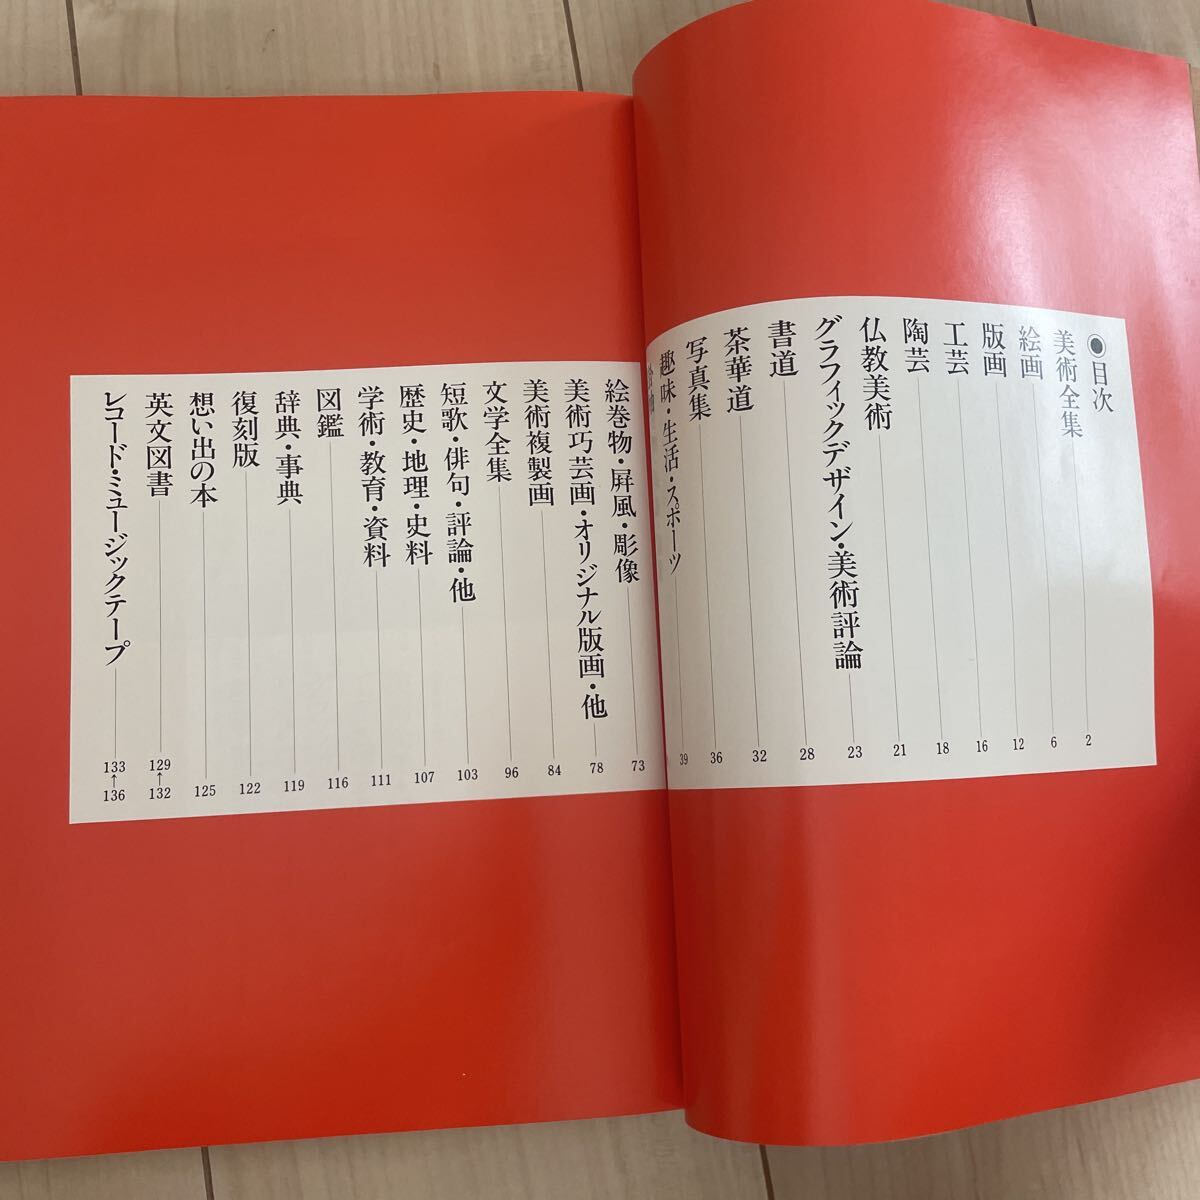 ◉目次
美術全集 2
絵画 6
版画 12
工芸 16
陶芸 18
仏教美術 21
グラフィックデザイン・美術評論 23
書道 28
茶華道 32
写真集 36
趣味・生活・スポーツ 39
絵巻物・屛風・彫像 73
美術巧芸画・オリジナル版画・他 78
美術複製画 84
文学全集 96
短歌・俳句・評論・他 103
歴史・地理・史料 107
学術・教育・資料 111
図鑑 116
辞典・事典 119
復刻版 122
想い出の本 125
英文図書 129↑132
レコード・ミュージックテープ 133↑136